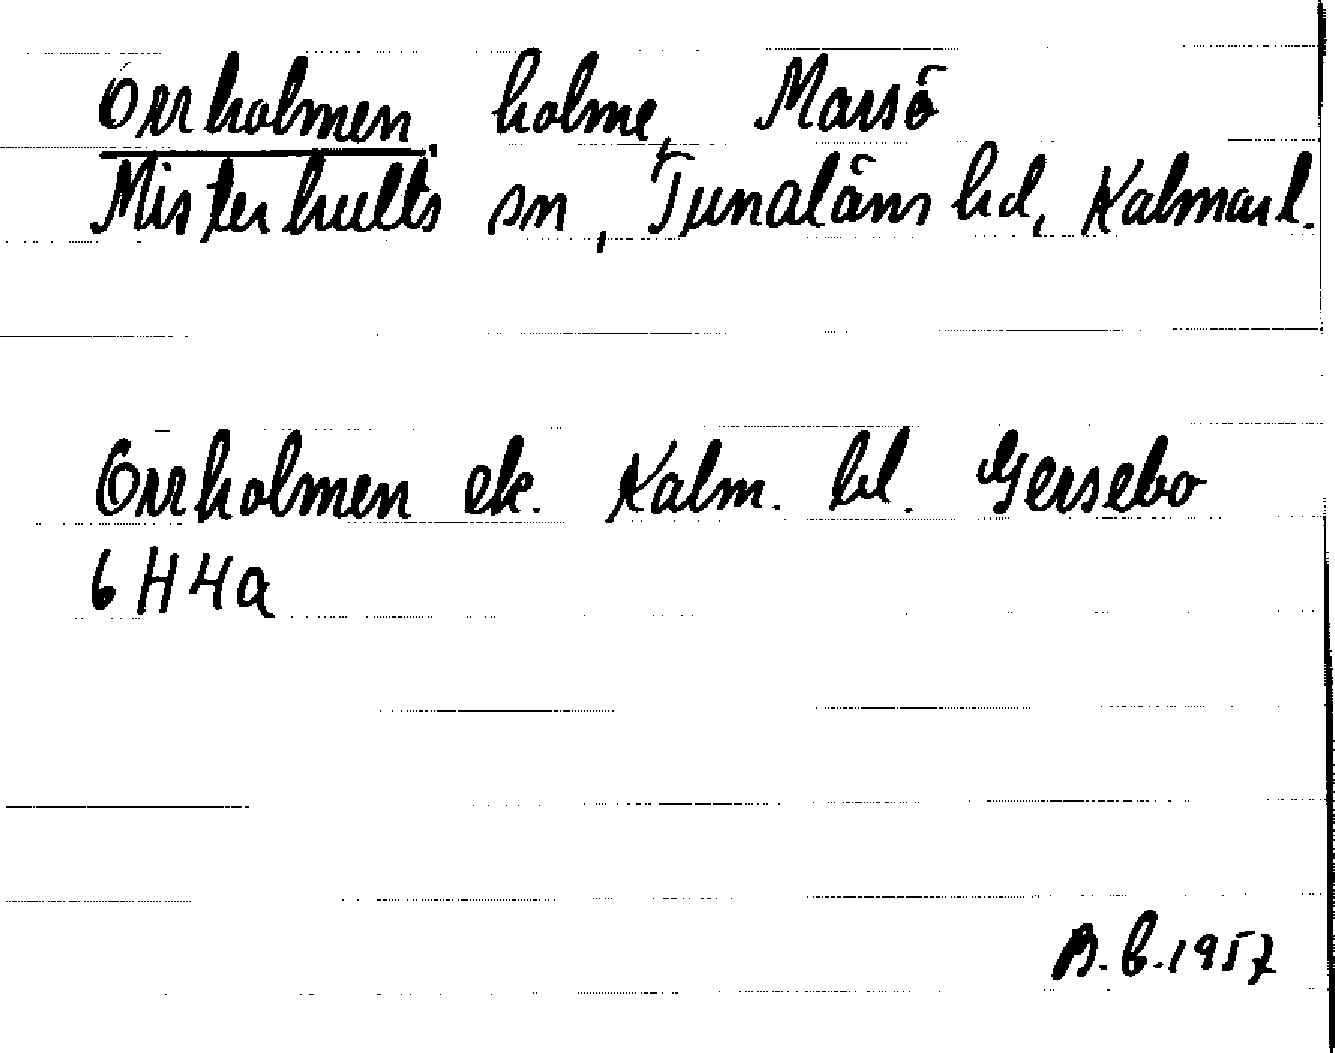 Orrholmen, holme, Marsö
Misterhults sn, Tunaläns hd, Kalmar l.
Orrholmen ek. Kalm. bl. Gersebo
6 H 4a
B.b.1957